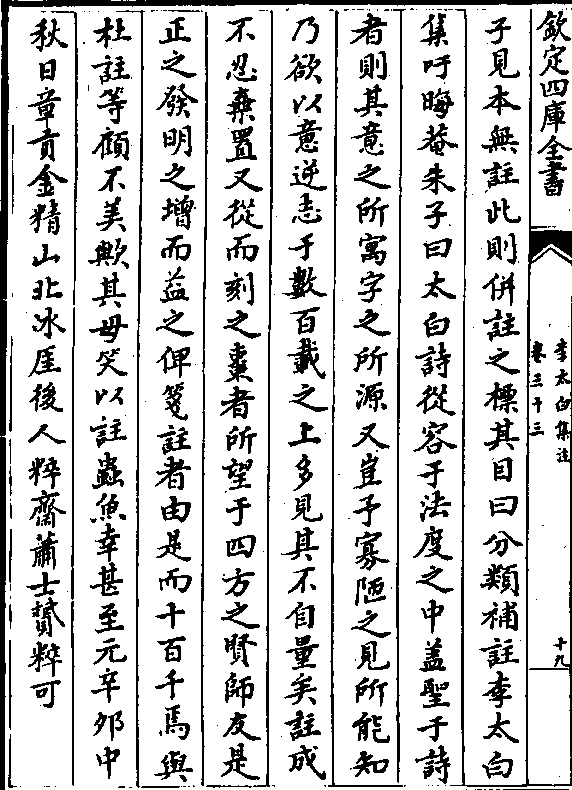 欽定四庫全書
李太白集注
卷三十三
十九
子見本無註此則併註之標其目曰分類補註李太白
集吁晦菴朱子曰太白詩從容于法度之中葢聖于詩
者則其意之所寓字之所源又豈予寡陋之見所能知
乃欲以意逆志于數百載之上多見其不自量矣註成
不忍棄置又從而刻之棗者所望于四方之賢師友是
正之發明之增而益之俾箋註者由是而十百千焉與
杜註等顧不美歟其毋笑以註蟲魚幸甚至元辛卯中
秋日章貢金精山北冰厓後人粹齋蕭士贇粹可